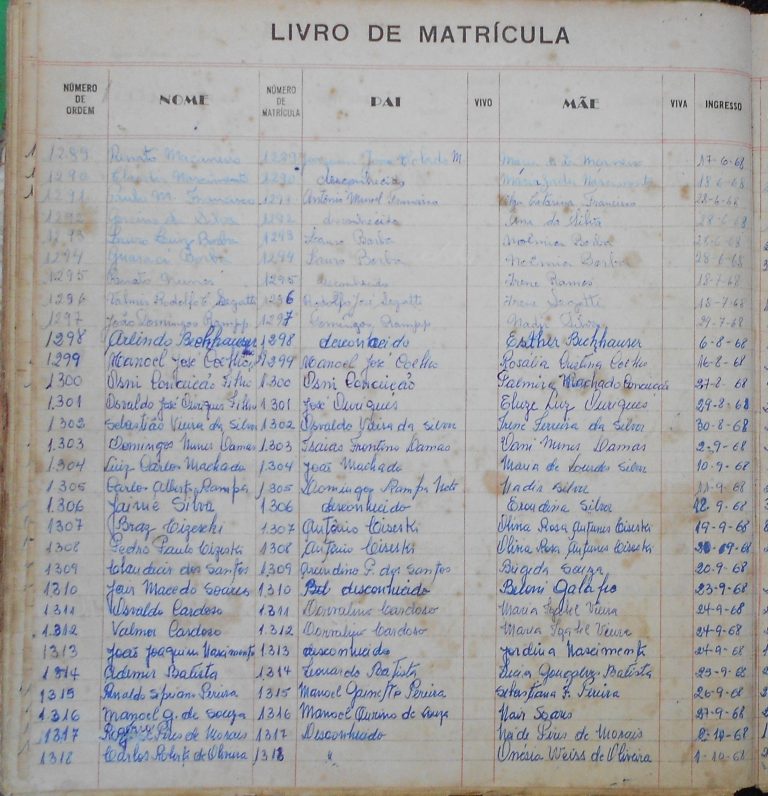 LIVRO DE MATRÍCULA
NÚMERO DE ORDEM NOME NÚMERO DE MATRÍCULA PAI VIVO MÃE VIVA INGRESSO
1289 Renato 1289 17-6-68
1290 Nascimento 1290 desconhecido 18-6-68
1291 Paulo M. Francisco 1291 Antônio Manoel Francisco Francisco 28-6-68
1292 da Silva 1292 desconhecido Ana da Silva 28-6-68
1293 Lauro Luiz Borba 1293 Lauro Borba Noêmia Borba 28-6-68
1294 Guaraci Borba 1294 Lauro Borba Noêmia Borba 28-6-68
1295 Renato 1295 desconhecido Irene Ramos 18-7-68
1296 Valmir Rodolfo E. Segatti 1296 Rodolfo José Segatti Irene Segatti 18-7-68
1297 João Domingos Rampp 1297 Domingos Rampp Nadir Silva 29-7-68
1298 Arlindo Bechhauser 1298 desconhecido Esther Bechhauser 6-8-68
1299 Manoel José Coelho 1299 Manoel José Coelho Rosalia Cristina Coelho 16-8-68
1300 Osni Conceição Filho 1300 Osni Conceição Palmira Machado Conceição 27-8-68
1301 Osvaldo José Ouriques Filho 1301 José Ouriques Eluze Luz Ouriques 29-8-68
1302 Sebastião Vieira da Silva 1302 Osvaldo Vieira da Silva Irene Ferreira da Silva 30-8-68
1303 Domingos Nunes Damas 1303 Isaias Frontino Damas Vani Nunes Damas 2-9-68
1304 Luiz Carlos Machado 1304 João Machado Maria de Lourdes Silva 10-9-68
1305 Carlos Alberto Rampa 1305 Domingos Rampa Neto Nadir Silva 11-9-68
1306 Jaime Silva 1306 desconhecido Silva 12-9-68
1307 Braz Cizeski 1307 Antônio Ciseski Olina Rosa Antunes Ciseski 19-9-68
1308 Pedro Paulo Cizeski 1308 Antônio Ciseski Olina Rosa Antunes Ciseski 20-09-68
1309 Claudecir dos Santos 1309 P. dos Santos Brigida Souza 20-9-68
1310 Jair Macedo Soares 1310 desconhecido Beloni Galafio 23-9-68
1311 Osvaldo Cardoso 1311 Dorvalino Cardoso Maria Izabel Vieira 24-9-68
1312 Valmor Cardoso 1312 Dorvalino Cardoso Maria Izabel Vieira 24-9-68
1313 João Joaquim Nascimento 1313 desconhecido Jordina Nascimento 24-9-68
1314 Ademir Batista 1314 Leonardo Batista Lucia Gonçalves Batista 25-9-68
1315 Pereira 1315 Manoel Pereira Sebastiana F. Pereira 26-9-68
1316 Manoel G. de Souza 1316 Manoel Quirino de Souza Nair Soares 27-9-68
1317 Pires de Morais 1317 Desconhecido Neide Pires de Morais 2-10-68
1318 Carlos Roberto de Oliveira 1318 " Onésia Weiss de Oliveira 1-10-68